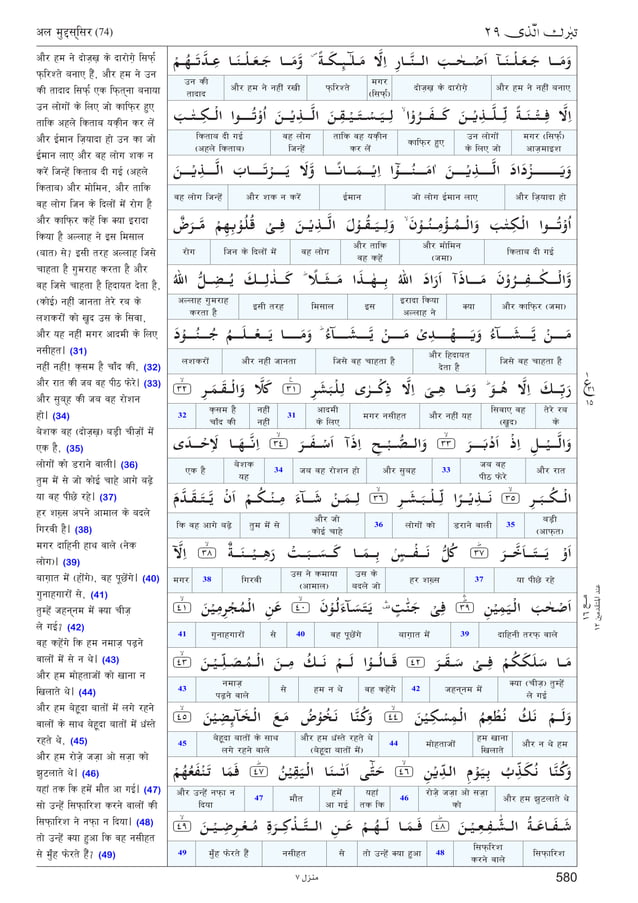 अल मुद्दस्सिर (74)
تبٰرك الّذى ٢٩
और हम ने दोज़ख़ के दारोग़े सिर्फ़
फ़रिश्ते बनाए हैं, और हम ने उन
की तादाद सिर्फ़ एक फ़ित्ना बनाया
उन लोगों के लिए जो काफ़िर हुए
ताकि अहले किताब यक़ीन कर लें
और ईमान ज़ियादा हो उन का जो
ईमान लाए और वह लोग शक न
करें जिन्हें किताब दी गई (अहले
किताब) और मोमिन, और ताकि
वह लोग जिन के दिलों में रोग है
और काफ़िर कहें कि क्या इरादा
किया है अल्लाह ने इस मिसाल
(बात) से? इसी तरह अल्लाह जिसे
चाहता है गुमराह करता है और
वह जिसे चाहता है हिदायत देता है,
(कोई) नहीं जानता तेरे रब के
लशकरों को ख़ुद उस के सिवा,
और यह नहीं मगर आदमी के लिए
नसीहत। (31)
नहीं नहीं! क़सम है चाँद की, (32)
और रात की जब वह पीठ फेरे। (33)
और सुबह की जब वह रोशन
हो। (34)
बेशक वह (दोज़ख़) बड़ी चीज़ों में
एक है, (35)
लोगों को डराने वाली। (36)
तुम में से जो कोई चाहे आगे बढ़े
या वह पीछे रहे। (37)
हर शख़्स अपने आमाल के बदले
गिरवी है। (38)
मगर दाहिनी हाथ वाले (नेक
लोग)। (39)
बाग़ात में (होंगे), वह पूछेंगे। (40)
गुनाहगारों से, (41)
तुम्हें जहन्नम में क्या चीज़
ले गई? (42)
वह कहेंगे कि हम नमाज़ पढ़ने
वालों में से न थे। (43)
और हम मोहताजों को खाना न
खिलाते थे। (44)
और हम बेहूदा बातों में लगे रहने
वालों के साथ बेहूदा बातों में धंस्ते
रहते थे, (45)
और हम रोज़े जज़ा ओ सज़ा को
झुटलाते थे। (46)
यहां तक कि हमें मौत आ गई। (47)
सो उन्हें सिफ़ारिश करने वालों की
सिफ़ारिश ने नफ़ा न दिया। (48)
तो उन्हें क्या हुआ कि वह नसीहत
से मुँह फेरते हैं? (49)
وَمَا جَعَلْنَآ اَصْحٰبَ النَّارِ اِلَّا مَلٰٓىِٕكَةً ۪ وَّمَا جَعَلْنَا عِدَّتَهُمْ
और हम ने नहीं बनाए दोज़ख़ के दारोग़े मगर (सिर्फ़) फ़रिश्ते और हम ने नहीं रखी उन की तादाद
اِلَّا فِتْنَةً لِّلَّذِيْنَ كَفَرُوْا ۙ لِيَسْتَيْقِنَ الَّذِيْنَ اُوْتُوا الْكِتٰبَ
मगर (सिर्फ़) आज़माइश उन लोगों के लिए जो काफ़िर हुए ताकि वह यक़ीन कर लें वह लोग जिन्हें किताब दी गई (अहले किताब)
وَيَزْدَادَ الَّذِيْنَ اٰمَنُوْٓا اِيْمَانًا وَّلَا يَرْتَابَ الَّذِيْنَ
और ज़ियादा हो जो लोग ईमान लाए ईमान और शक न करें वह लोग जिन्हें
اُوْتُوا الْكِتٰبَ وَالْمُؤْمِنُوْنَ ۙ وَلِيَقُوْلَ الَّذِيْنَ فِيْ قُلُوْبِهِمْ مَّرَضٌ
किताब दी गई और मोमिन (जमा) और ताकि वह कहें वह लोग जिन के दिलों में रोग
وَّالْكٰفِرُوْنَ مَاذَآ اَرَادَ اللّٰهُ بِهٰذَا مَثَلًا ؕ كَذٰلِكَ يُضِلُّ اللّٰهُ
और काफ़िर (जमा) क्या इरादा किया अल्लाह ने इस मिसाल इसी तरह अल्लाह गुमराह करता है
مَنْ يَّشَآءُ وَيَهْدِيْ مَنْ يَّشَآءُ ؕ وَمَا يَعْلَمُ جُنُوْدَ
जिसे वह चाहता है और हिदायत देता है जिसे वह चाहता है और नहीं जानता लशकरों
رَبِّكَ اِلَّا هُوَ ؕ وَمَا هِيَ اِلَّا ذِكْرٰى لِلْبَشَرِ ﴿٣١﴾ كَلَّا وَالْقَمَرِ ﴿٣٢﴾
तेरे रब के सिवाए वह (ख़ुद) और नहीं यह मगर नसीहत आदमी के लिए 31 नहीं नहीं क़सम है चाँद की 32
وَالَّيْلِ اِذْ اَدْبَرَ ﴿٣٣﴾ وَالصُّبْحِ اِذَآ اَسْفَرَ ﴿٣٤﴾ اِنَّهَا لَاِحْدَى
और रात जब वह पीठ फेरे 33 और सुबह जब वह रोशन हो 34 बेशक यह एक है
الْكُبَرِ ﴿٣٥﴾ نَذِيْرًا لِّلْبَشَرِ ﴿٣٦﴾ لِمَنْ شَآءَ مِنْكُمْ اَنْ يَّتَقَدَّمَ
बड़ी (आफ़त) 35 डराने वाली लोगों को 36 और जो कोई चाहे तुम में से कि वह आगे बढ़े
اَوْ يَتَاَخَّرَ ﴿٣٧﴾ كُلُّ نَفْسٍۭ بِمَا كَسَبَتْ رَهِيْنَةٌ ﴿٣٨﴾ اِلَّآ
या पीछे रहे 37 हर शख़्स उस के बदले जो उस ने कमाया (आमाल) गिरवी 38 मगर
اَصْحٰبَ الْيَمِيْنِ ﴿٣٩﴾ فِيْ جَنّٰتٍ ۛ يَتَسَآءَلُوْنَ ﴿٤٠﴾ عَنِ الْمُجْرِمِيْنَ ﴿٤١﴾
दाहिनी तरफ़ वाले 39 बाग़ात में वह पूछेंगे 40 से गुनाहगारों 41
مَا سَلَكَكُمْ فِيْ سَقَرَ ﴿٤٢﴾ قَالُوْا لَمْ نَكُ مِنَ الْمُصَلِّيْنَ ﴿٤٣﴾
क्या (चीज़) तुम्हें ले गई जहन्नम में 42 वह कहेंगे हम न थे से नमाज़ पढ़ने वाले 43
وَلَمْ نَكُ نُطْعِمُ الْمِسْكِيْنَ ﴿٤٤﴾ وَكُنَّا نَخُوْضُ مَعَ الْخَآىِٕضِيْنَ ﴿٤٥﴾
और न थे हम हम खाना खिलाते मोहताजों 44 और हम धंस्ते रहते थे (बेहूदा बातों में) बेहूदा बातों के साथ लगे रहने वाले 45
وَكُنَّا نُكَذِّبُ بِيَوْمِ الدِّيْنِ ﴿٤٦﴾ حَتّٰٓى اَتٰىنَا الْيَقِيْنُ ﴿٤٧﴾ فَمَا تَنْفَعُهُمْ
और हम झुटलाते थे रोज़े जज़ा ओ सज़ा को 46 यहां तक कि हमें आ गई मौत 47 और उन्हें नफ़ा न दिया
شَفَاعَةُ الشّٰفِعِيْنَ ﴿٤٨﴾ فَمَا لَهُمْ عَنِ التَّذْكِرَةِ مُعْرِضِيْنَ ﴿٤٩﴾
सिफ़ारिश सिफ़ारिश करने वाले 48 तो उन्हें क्या हुआ से नसीहत मुँह फेरते हैं 49
منزل ٧
580